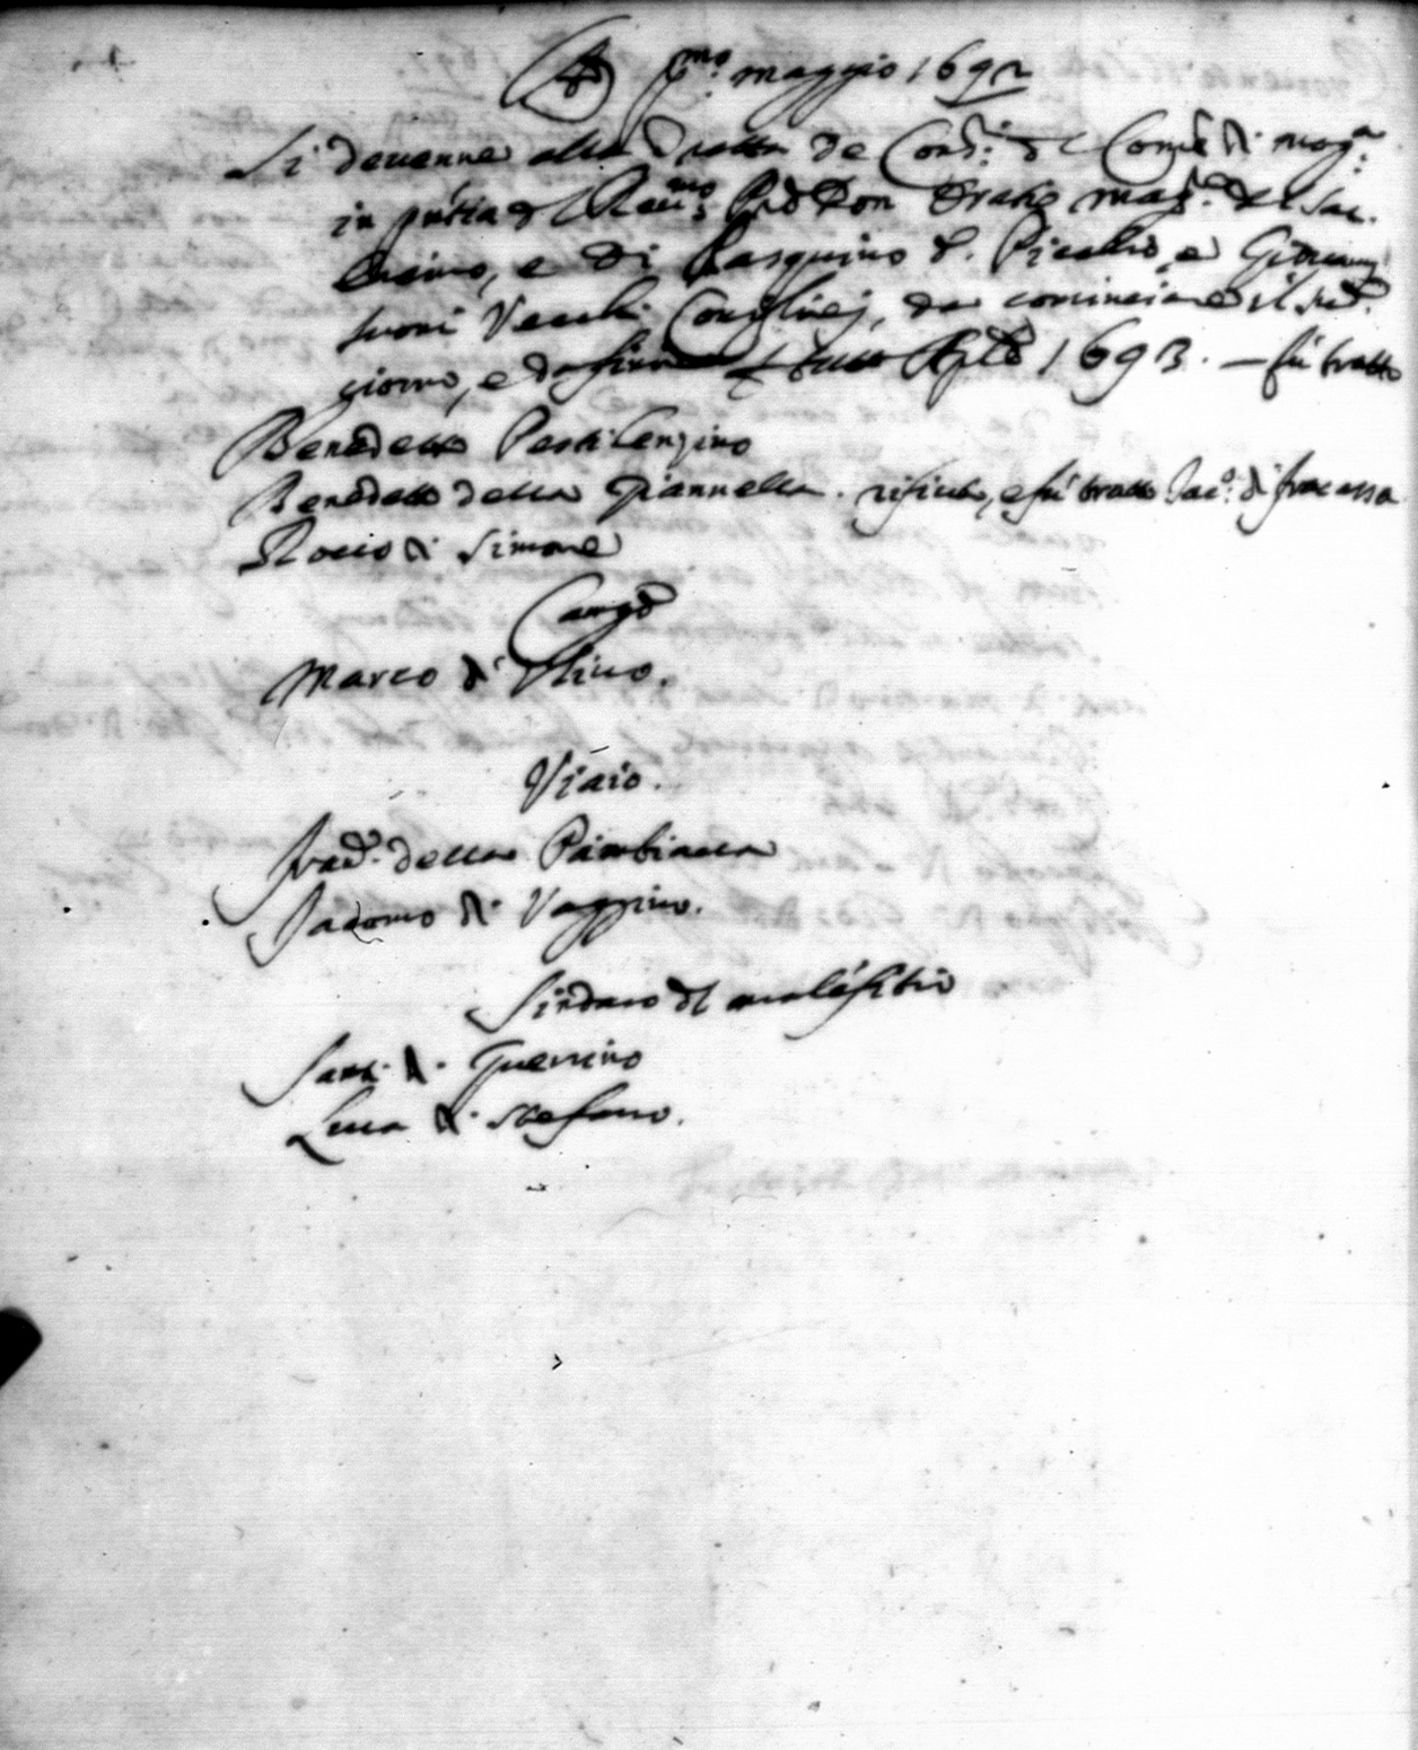 A dì p.mo maggio 1692
Si devenne alla tratta de Cons.i del Com.e di mog.a
in p̃ntia del Rev.mo Prd Don Oratio mag.e del Sac.
e di Pasquino d. Picchio, e Giovanni
Vecchi Consiglieri, da cominciare il sud.o
giorno, e da finire p tutto Aple 1693. – fù tratto
Benedetto Pestilenzino
Benedetto della Giannella. rifiutò, e fù tratto Jac.o di fracassa
Rocco di Simone
Camgo
Marco di Olivo.
Viaio.
Fran.o della Piambianca
Jacomo di Vaggino.
Sindaco del malefitio
Santi di Guerrino
Luca di Stefano.